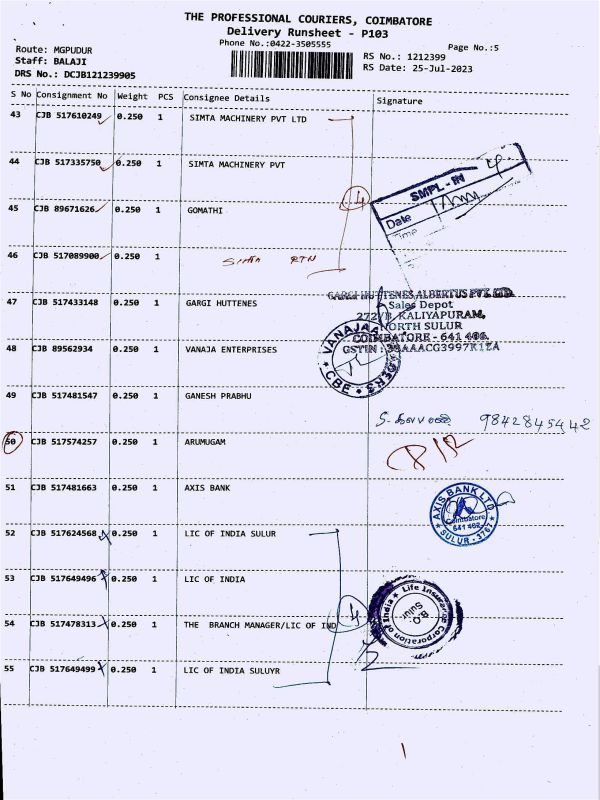 THE PROFESSIONAL COURIERS, COIMBATORE
Delivery Runsheet - P103
Phone No.:0422-3505555
Page No.:5
Route: MGPUDUR
Staff: BALAJI
DRS No.: DCJB121239905
RS No.: 1212399
RS Date: 25-Jul-2023
S No Consignment No Weight PCS Consignee Details Signature
43 CJB 517610249 0.250 1 SIMTA MACHINERY PVT LTD
44 CJB 517335750 0.250 1 SIMTA MACHINERY PVT
SMPL - IN
4
Date
Time
45 CJB 89671626 0.250 1 GOMATHI
46 CJB 517089900 0.250 1 SIMTA RTN
47 CJB 517433148 0.250 1 GARGI HUTTENES
GARGI HUTTENES ALBERTUS PVT. LTD.
Sales Depot
272/B, KALIYAPURAM,
NORTH SULUR
COIMBATORE - 641 406.
48 CJB 89562934 0.250 1 VANAJA ENTERPRISES
49 CJB 517481547 0.250 1 GANESH PRABHU
9842845442
50 CJB 517574257 0.250 1 ARUMUGAM
51 CJB 517481663 0.250 1 AXIS BANK
AXIS BANK LTD
Coimbatore
641 402
SULUR - 3767
52 CJB 517624568 0.250 1 LIC OF INDIA SULUR
53 CJB 517649496 0.250 1 LIC OF INDIA
54 CJB 517478313 0.250 1 THE BRANCH MANAGER/LIC OF IND
4
Life Insurance Corporation of India
B.O.
Sulur
55 CJB 517649499 0.250 1 LIC OF INDIA SULUYR